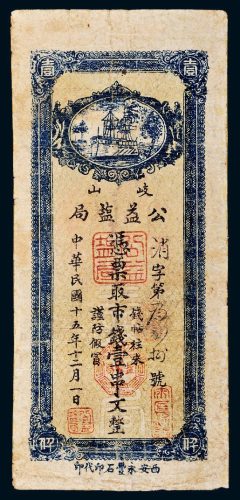 壹
壹
岐山
公益鹽局
消字第號
憑票取市錢壹串文整
錢帖往來
謹防假冒
中華民國十五年十二月一日
西安永豐石印代印